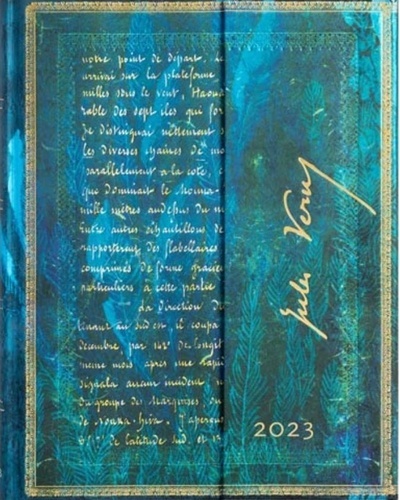 notre point de départ, le
arrivai sur la plateforme
milles sous le vent, Haoua
rable des sept îles qui for
Je distinguai nettement s
les diverses chaînes de mo
parallèlement à la côte, c
que dominait le Mouna-
mille mètres audessus du n
Entre autres échantillons de
rapportèrent des flabellaires
comprimés de forme gracieu
particuliers à cette partie
La direction du
tenant au sud est, il coupa
décembre, par 142° de longit
meme mois après une rapi
signala aucun incident,
du groupe des Marquises, ou
de Nouka-hiva. J'aperçus
de latitude sud, et 13
Jules Verne
2023